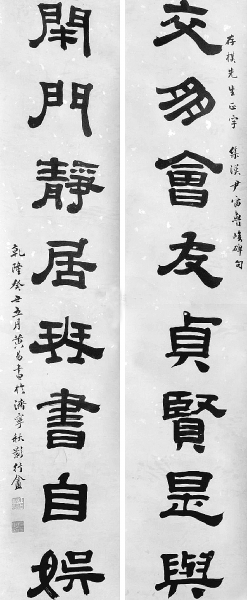 存樸先生正字 集漢尹宙魯峻碑句
交多會友貞賢是與
閉門靜居琴書自娛
乾隆癸丑五月黃易書於濟寧秋影行盦